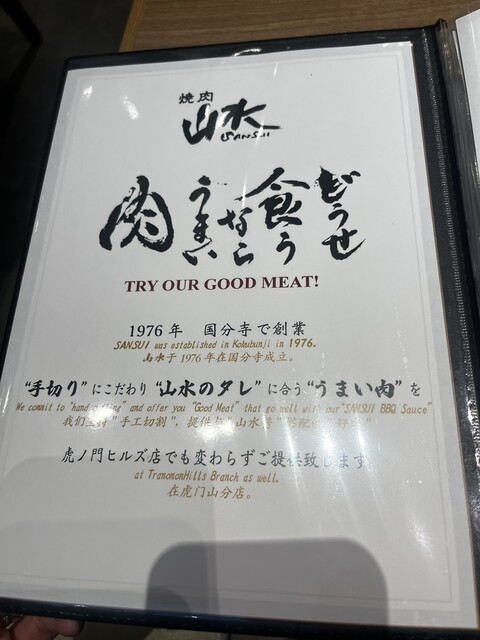 焼肉
山水
SANSUI
どうせ
食う
なら
うまい
肉
TRY OUR GOOD MEAT!
1976年 国分寺で創業
SANSUI was established in Kokubunji in 1976.
山水于1976年在国分寺成立。
"手切り"にこだわり"山水のタレ"に合う"うまい肉"を
We commit to "hand and offer you "Good Meat" that go well with our "SANSUI BBQ Sauce"
我们 "手工切割",提供与"山水
虎ノ門ヒルズ店でも変わらずご提供致します
at TranomonHills Branch as well.
在虎门山分店。